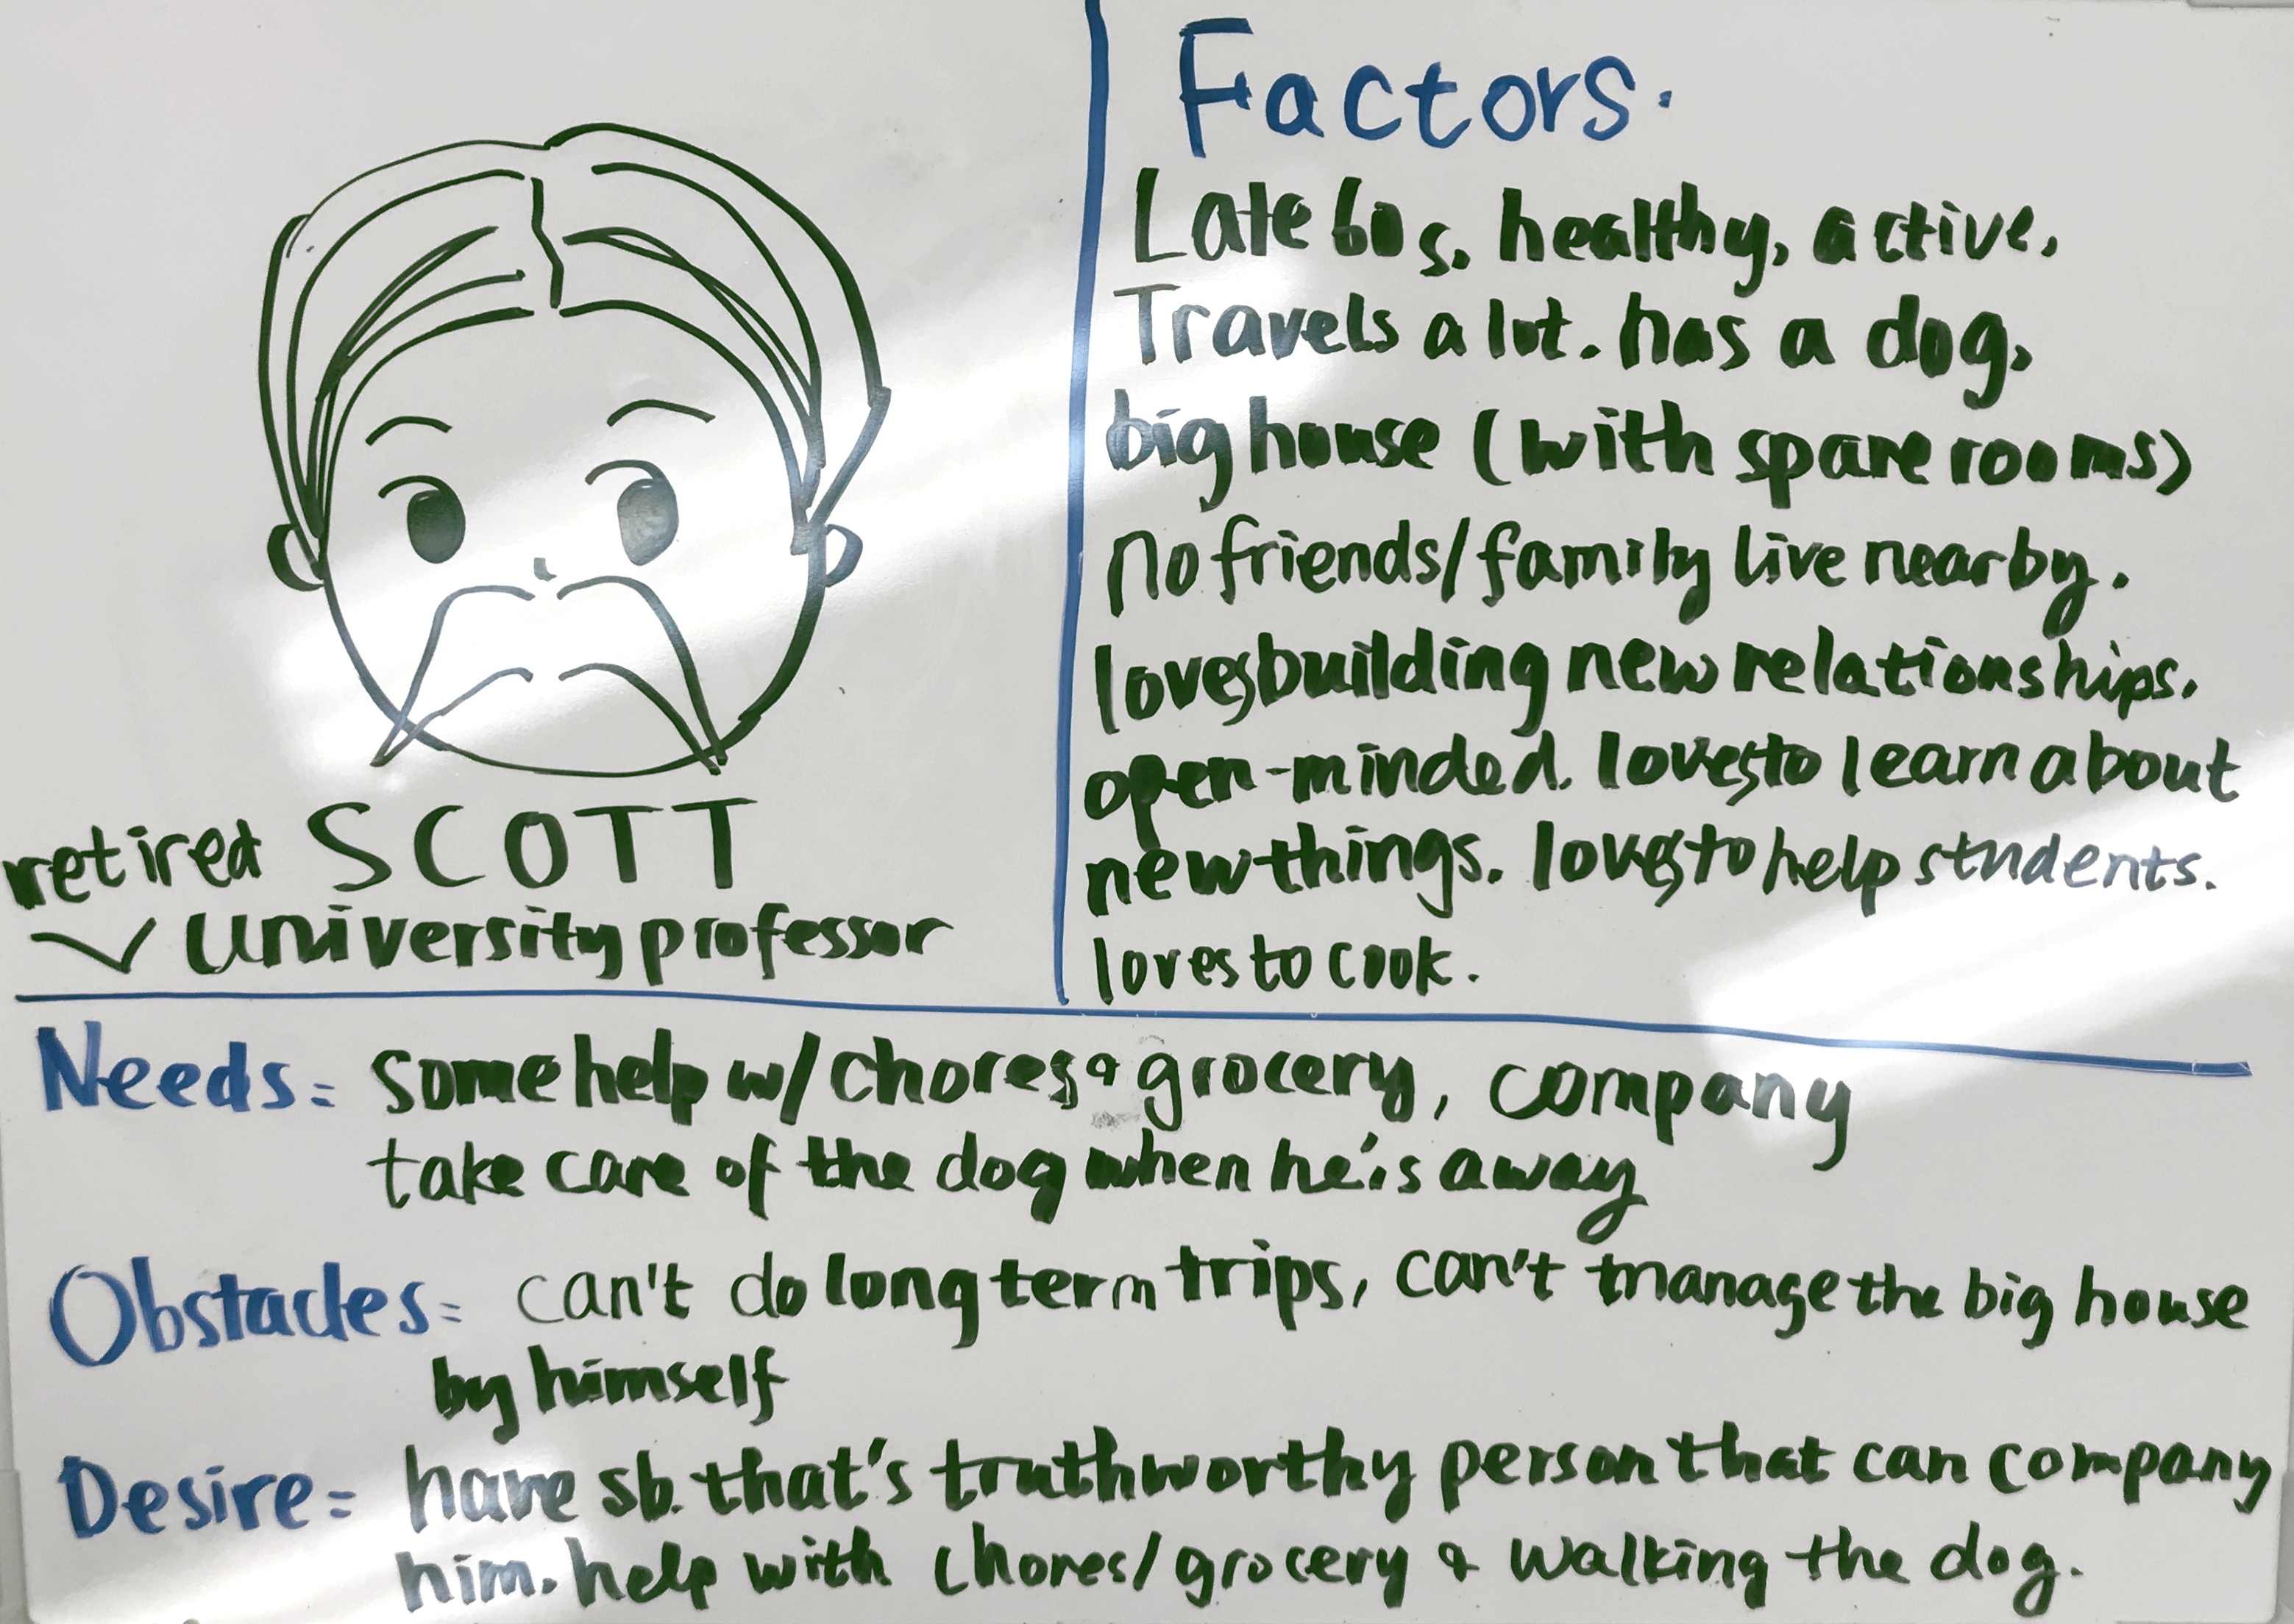 retired SCOTT
university professor
Factors.
Late 60s. healthy, active.
Travels a lot. has a dog,
big house (with spare rooms)
no friends/family live nearby.
loves building new relationships.
open-minded. loves to learn about
new things. loves to help students.
loves to cook.
Needs: some help w/ chores & grocery, company
take care of the dog when he's away
Obstacles: can't do long term trips, can't manage the big house
by himself
Desire: have sb. that's truthworthy person that can company
him. help with chores/grocery & walking the dog.